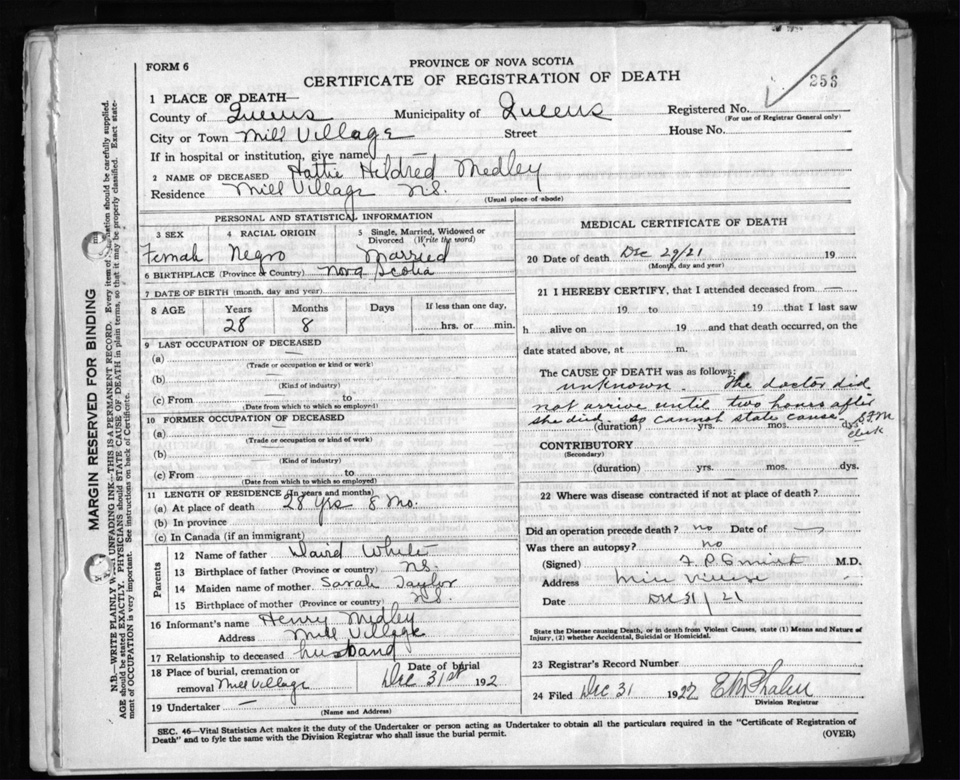 FORM 6
PROVINCE OF NOVA SCOTIA
CERTIFICATE OF REGISTRATION OF DEATH
253
1 PLACE OF DEATH—
County of Queens Municipality of Queens Registered No.
(For use of Registrar General only)
City or Town Mill Village Street House No.
If in hospital or institution, give name
2 NAME OF DECEASED Hattie Hildred Medley
Residence Mill Village N.S.
(Usual place of abode)
PERSONAL AND STATISTICAL INFORMATION
3 SEX 4 RACIAL ORIGIN 5 Single, Married, Widowed or Divorced (Write the word)
Femal Negro Married
6 BIRTHPLACE (Province or Country) Nova Scotia
7 DATE OF BIRTH (month, day and year)
8 AGE Years Months Days If less than one day,
28 8 hrs. or min.
9 LAST OCCUPATION OF DECEASED
(a)
(Trade or occupation or kind of work)
(b)
(Kind of industry)
(c) From to
(Date from which to which so employed)
10 FORMER OCCUPATION OF DECEASED
(a)
(Trade or occupation or kind of work)
(b)
(Kind of industry)
(c) From to
(Date from which to which so employed)
11 LENGTH OF RESIDENCE (In years and months)
(a) At place of death 28 Yrs 8 Mo.
(b) In province
(c) In Canada (if an immigrant)
Parents
12 Name of father White
13 Birthplace of father (Province or country) N.S.
14 Maiden name of mother Sarah Taylor
15 Birthplace of mother (Province or country) N.S.
16 Informant's name Henry Medley
Address Mill Village
17 Relationship to deceased husband
18 Place of burial, cremation or removal Mill Village Date of burial Dec 31st 192
19 Undertaker —
(Name and Address)
MEDICAL CERTIFICATE OF DEATH
20 Date of death Dec 29/21 19
(Month, day and year)
21 I HEREBY CERTIFY, that I attended deceased from —
19 to 19 that I last saw
h alive on 19 and that death occurred, on the
date stated above, at m.
The CAUSE OF DEATH was as follows:
unknown. The doctor did
not arrive until two hours after
she died so cannot state cause
(duration) yrs. mos. dys.
clerk
CONTRIBUTORY
(Secondary)
(duration) yrs. mos. dys.
22 Where was disease contracted if not at place of death?
Did an operation precede death? no Date of —
Was there an autopsy? no
(Signed) Smith M.D.
Address Mill Village
Date Dec 31/21
State the Disease causing Death, or in Death from Violent Causes, state (1) Means and Nature of
Injury, (2) whether Accidental, Suicidal or Homicidal.
23 Registrar's Record Number
24 Filed Dec 31 1922
Division Registrar
SEC. 46—Vital Statistics Act makes it the duty of the Undertaker or person acting as Undertaker to obtain all the particulars required in the "Certificate of Registration of
Death" and to fyle the same with the Division Registrar who shall issue the burial permit.
(OVER)
MARGIN RESERVED FOR BINDING
N.B.—WRITE PLAINLY WITH UNFADING INK—THIS IS A PERMANENT RECORD. Every item of information should be carefully supplied.
AGE should be stated EXACTLY. PHYSICIANS should STATE CAUSE OF DEATH in plain terms, so that it may be properly classified. Exact state-
ment of OCCUPATION is very important. See instructions on back of Certificate.